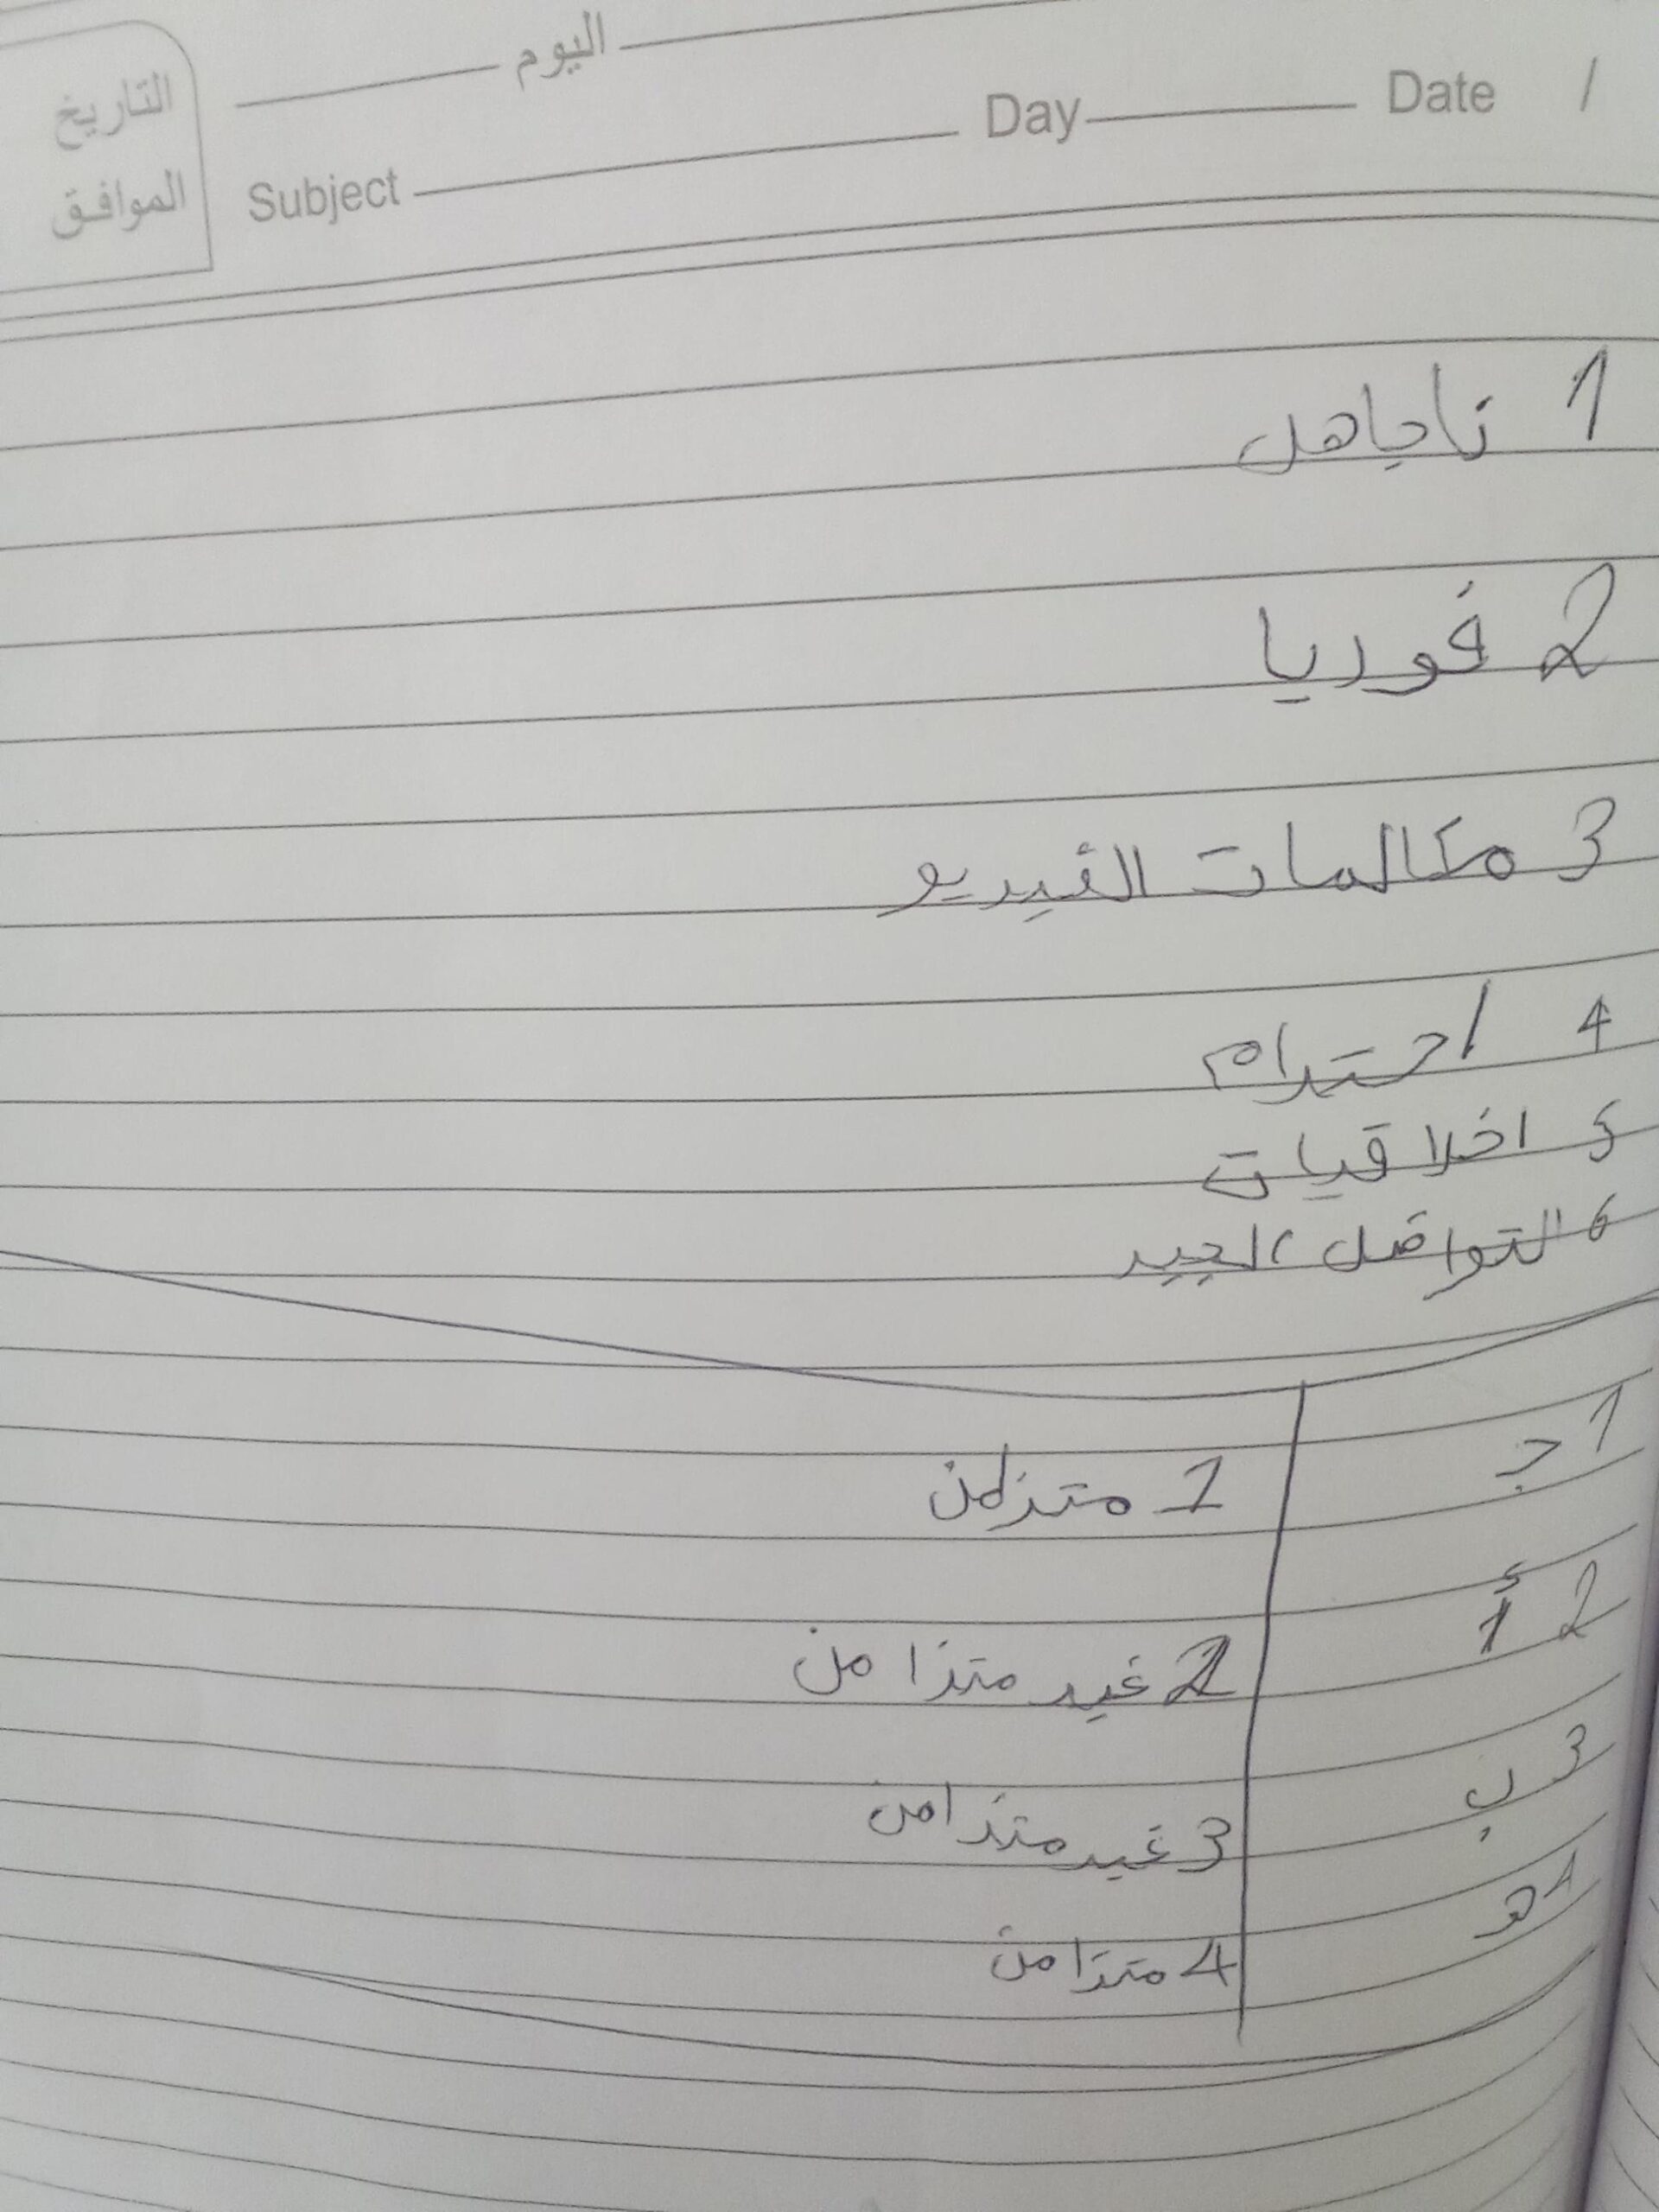 اليوم
التاريخ
Day Date /
الموافق
Subject
1 تاجاهل
2 فوريا
3 مكالمات الفيديو
4 احترام
5 اخلاقيات
6 التواصل الجيد
1 ج
1 متزامن
2 أ
2 غير متزامن
3 ب
3 غير متزامن
4 هـ
4 متزامن